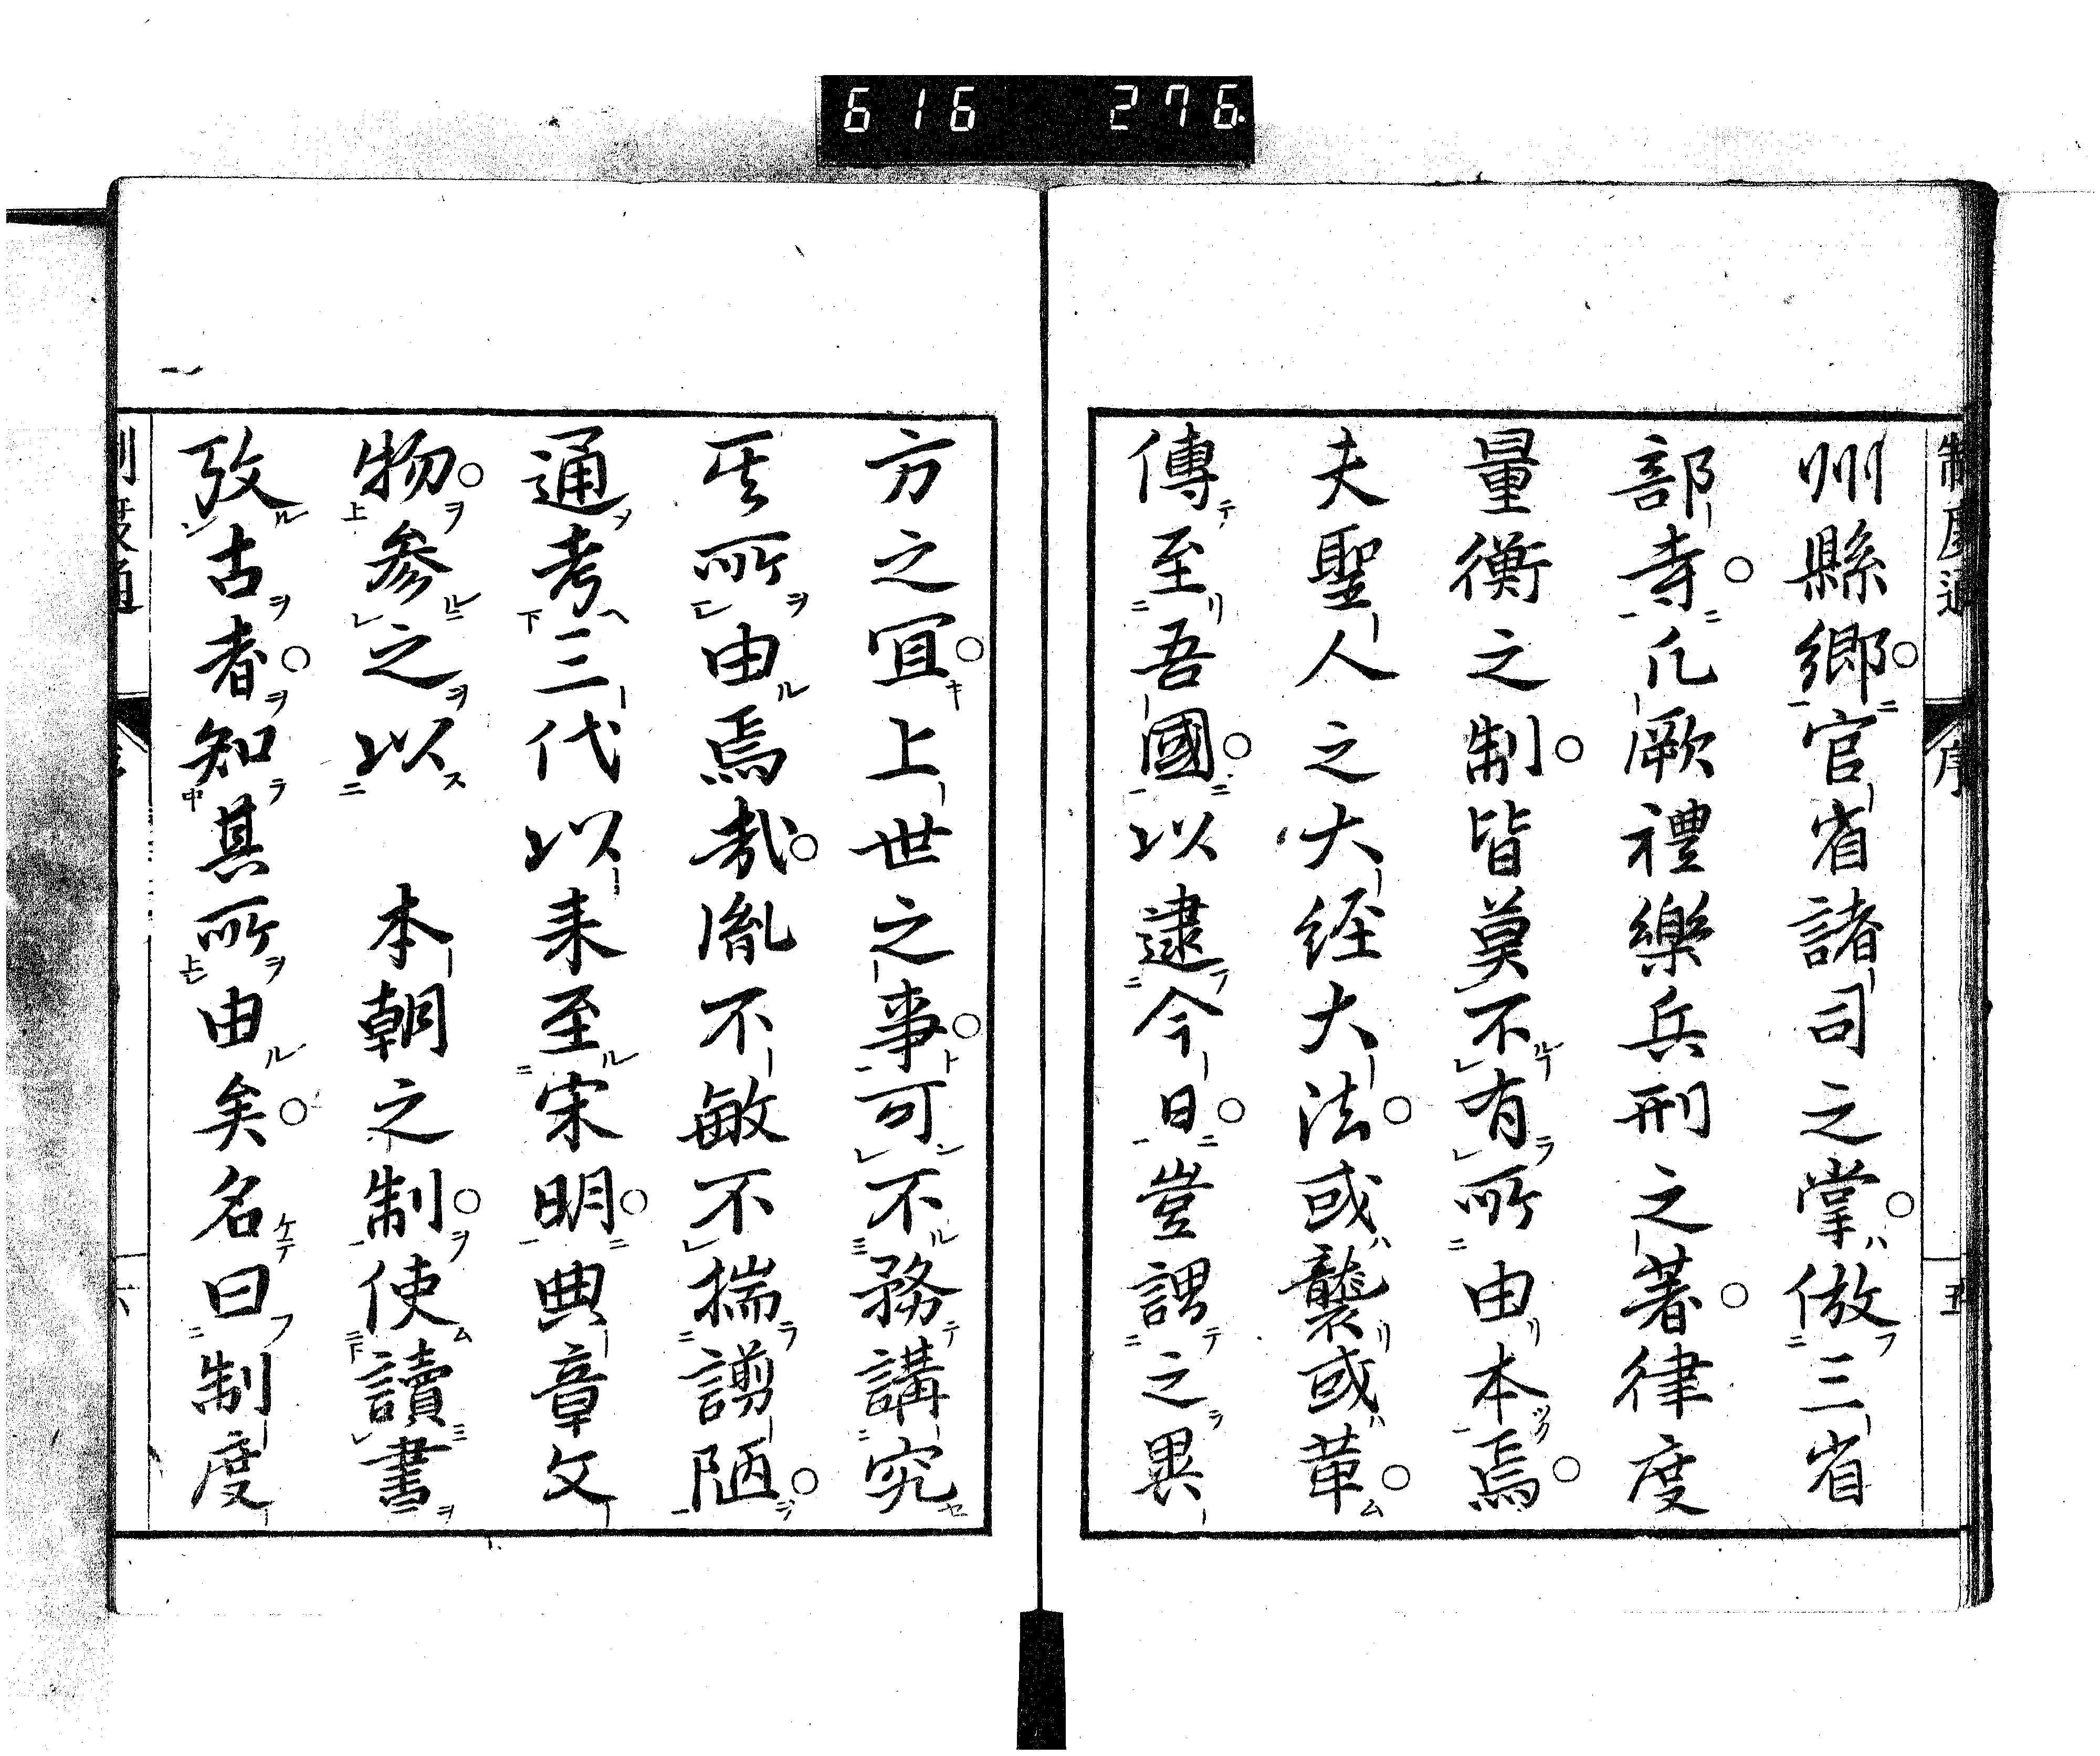 616 276
制度通 序 五
州縣鄉官省諸司之掌倣三省
部寺凡厥禮樂兵刑之著律度
量衡之制皆莫不有所由本焉
夫聖人之大經大法或襲或革
傳至吾國以逮今日豈謂之異
方之宜上世之事可不務講究
其所由焉哉胤不敏不揣謭陋
通考三代以来至宋明典章文
物参之以　本朝之制使讀書
攷古者知其所由矣名曰制度
制度通 序 六